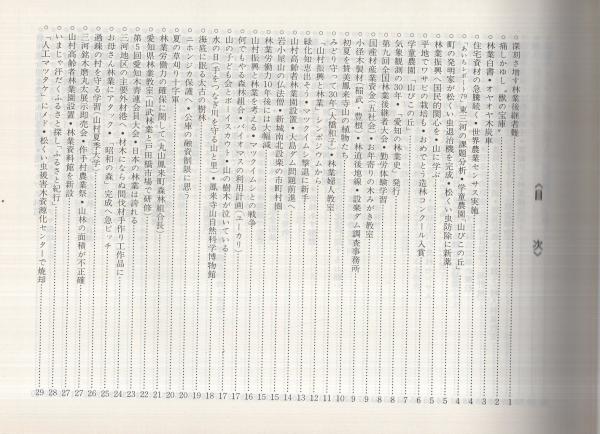 《目 次》
○深刻さ増す林業後継者難……1
○痛しかゆし〝根の宝庫〟……2
○林業白書・オヤオヤ炭車……2
○住宅資材の急騰続く・世界農林業センサス実施……3
「あいちレポート'79」東三河の課題分析・学童農園「山びこの丘」……4
○町の発明家が松くい虫退治機を完成・松くい虫防除に新薬……4
○林業振興へ国民的関心を・山に学ぶ……5
○平地でワサビの栽培も・おめでとう造林コンクール入賞……6
○学童農園「山びこの丘」……7
○気象観測の30年・「愛知の林業史」発行……7
○第九回全国林業後継者大会・勤労体験学習……8
○国産材産業資金(五社会)・お年寄りの木みがき教室……9
○小径木製材(稲武、豊根)・林道後地線・設楽ダム調査事務所……9
○初夏を賛美鳳来寺山の植物たち……10
○みどり守って30年(大橋和子)・林業婦人教室……11
○「山村振興と林業」シンポジウムから……11
○緑化知恵出そう・マツクイムシ撃退に新手……12
○山村高齢者林業園設置・大島ダム問題前進へ……13
○岩小屋山と法僧・新城南北設楽の市町村園……14
○林業労働力10年後には大幅減……15
○山村振興と林業を考える・マツクイムシとの戦争……16
○何でもやる森林組合・バイオマスの利用計画(ユーカリ)……17
○山の子ども会とボイスカウト・山の樹木が泣いている……17
○水の日(手をつなぎ川を守る山と里)・鳳来寺山自然科学博物館……18
○海底に眠る太古の樹林……19
○ニホンジカ保護へ・公庫の融資制限に思う……19
○夏の草刈り十字軍……20
○林業労働力の確保に関して(丸山鳳来町森林組合長)……20
○愛知県林業教室(山武林業と戸田橋市場で研修)……21
○第5回愛知木青連会員大会・日本の林業は誇れる……22
○三河地区の主要外材港へ・材木にならぬ間伐材手作り工作品に……23
○お母さん林業にアタック・「昭和の森」完成へ急ピッチ……24
○過疎の村を守る学習(山村夏季大学)……25
○三河銘木増産丸太展示即売会・作手村農業祭・山林の面積が不正確……26
○山村高齢者林業園設置・林業資料館を新設……27
○いまじゃ汗だくふるさと探し(ふるさと紀行)……28
○「人工マツタケ」にメド・松くい虫被害木資源化センターで焼却……29